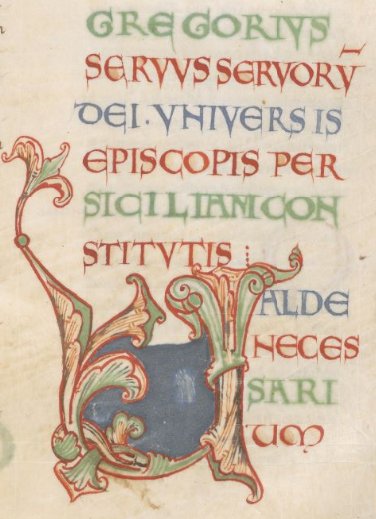 GREGORIVS
SERVVS SERVORṼ
DEI. VNIVERSIS
EPISCOPIS PER
SICILIAM CON
STITVTIS
VALDE
NECES
SARI
UM